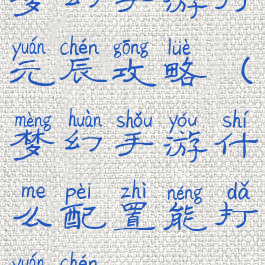 梦幻手游打
yuán chén gōng lüè
元辰攻略（
mèng huàn shǒu yóu shí
梦幻手游什
me pèi zhì néng dǎ
么配置能打
yuán chén